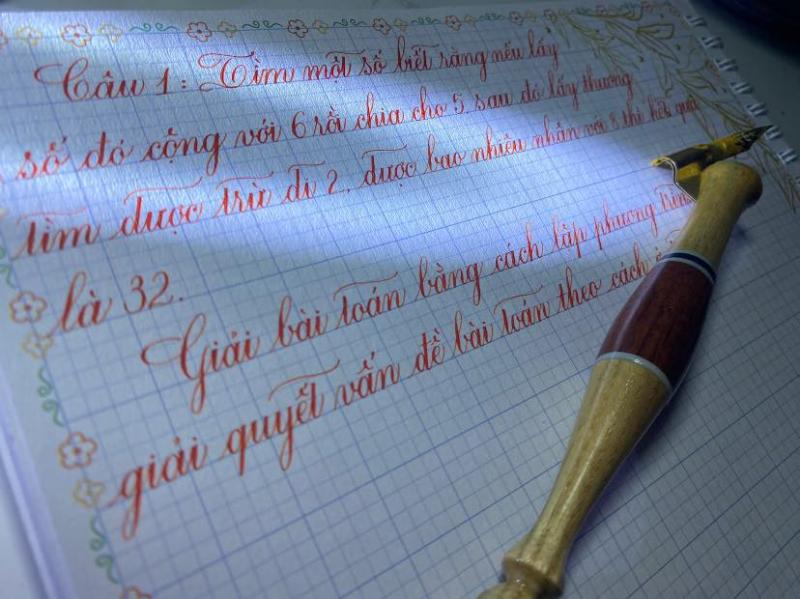 Câu 1: Tìm một số biết rằng nếu lấy
số đó cộng với 6 rồi chia cho 5, sau đó lấy thương
tìm được trừ đi 2, được bao nhiêu nhân với 8 thì kết quả
là 32.
Giải bài toán bằng cách lập phương
giải quyết vấn đề bài toán theo cách